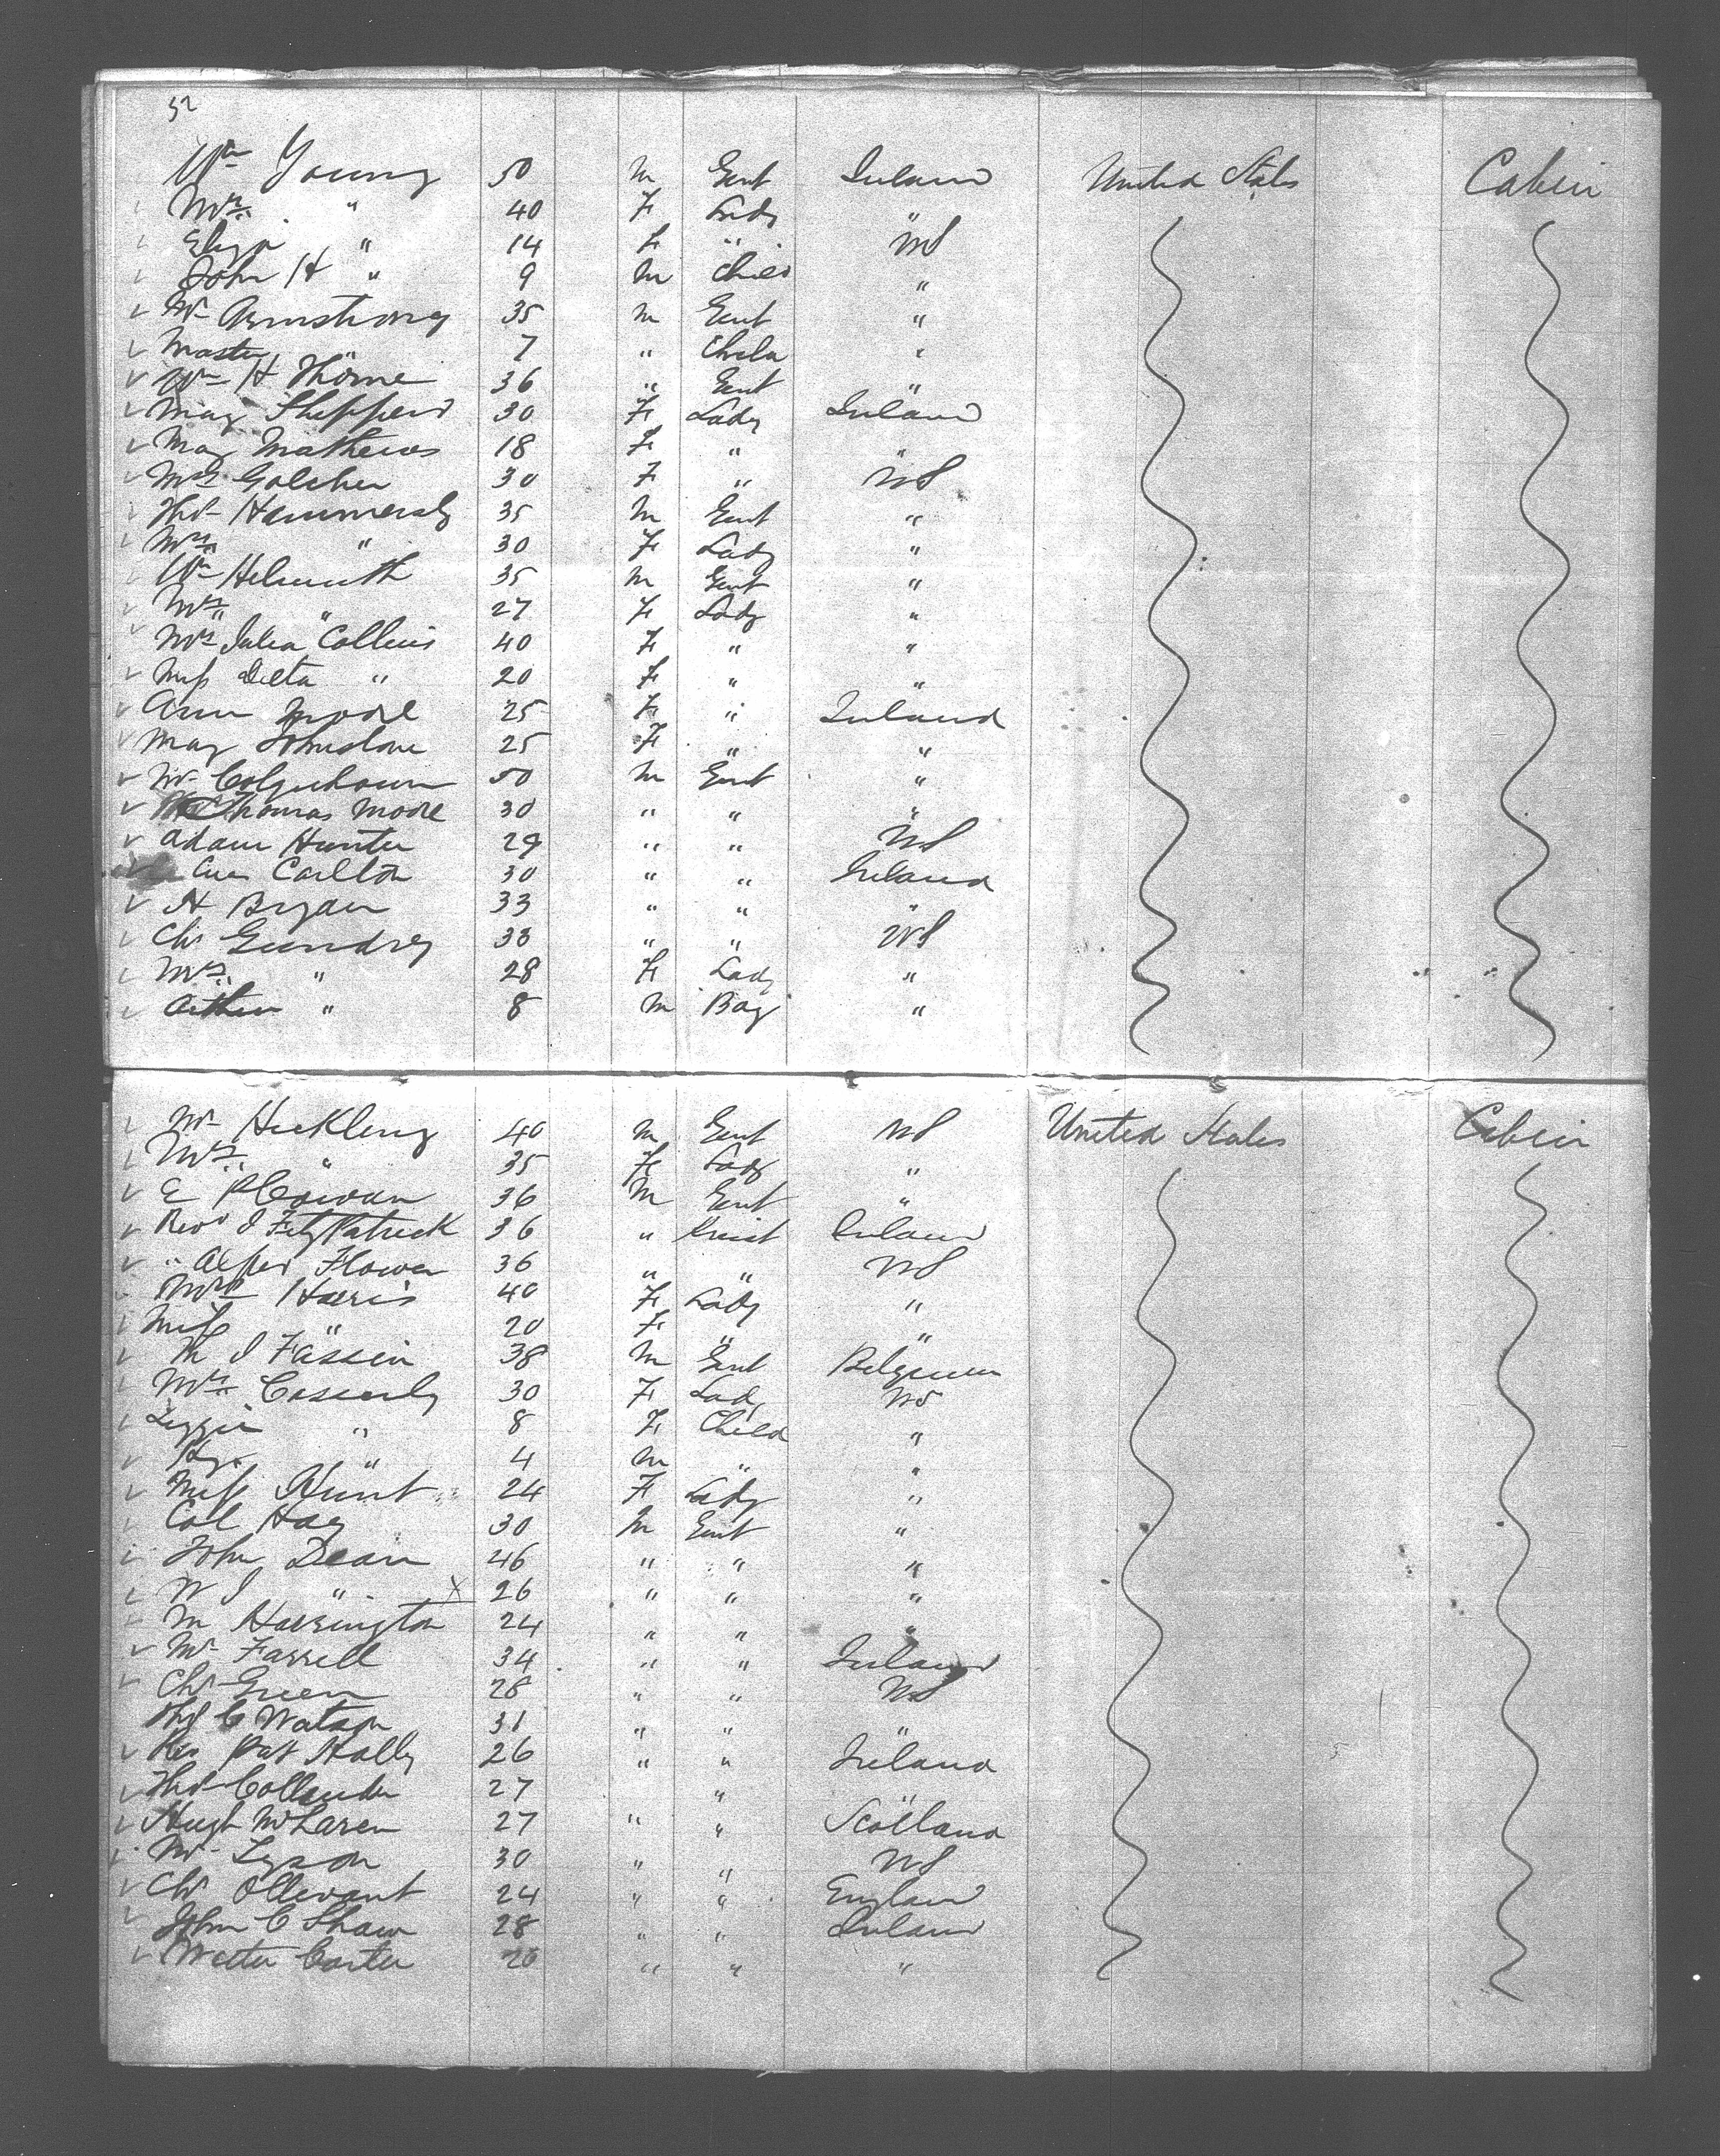 52
Wm Young 50 m Gent Ireland United States Cabin
Mrs " 40 F Lady "
Eliza " 14 F " US
John H " 9 m Child "
Mr Armstrong 35 m Gent "
Master " 7 " Child "
Wm H Thorne 36 " Gent "
Mary Shepperd 30 F Lady Ireland
Mary Mathews 18 F " "
Mrs Golcher 30 F " US
Thos Hammersly 35 m Gent "
Mrs " 30 F Lady "
Wm Helmuth 35 m Gent "
Mrs " 27 F Lady "
Mrs Julia Collins 40 F " "
Miss Delta " 20 F " "
Ann Moore 25 F " Ireland
Mary Johnstone 25 F " "
Mr Colquhoun 50 m Gent "
Thomas Moore 30 " " "
Adam Hunter 29 " " US
Carlton 30 " " Ireland
H Bryan 33 " " "
Chs Gundry 38 " " US
Mrs " 28 F Lady "
Arthur " 8 m Boy "
Mr Heckling 40 m Gent US United States Cabin
Mrs " 35 F Lady "
E P Cowan 36 m Gent "
Revd J FitzPatrick 36 " Priest Ireland
" Alfred Flower 36 " " US
Mrs Harris 40 F Lady "
Miss " 20 F " "
M J Fassin 38 m Gent Belgium
Mrs Casserly 30 F Lady US
Lizzie " 8 F Child "
Hy " 4 m " "
Miss Hunt 24 F Lady "
Col Hay 30 m Gent "
John Dean 46 " " "
W J " X 26 " " "
M Harrington 24 " " "
Mr Farrell 34 " " Ireland
Chs Green 28 " " US
Thos C Watson 31 " "
Rev Pat Hally 26 " " Ireland
Thos Collender 27 " "
Hugh McLaren 27 " " Scotland
Mr Tyson 30 " " US
Chs Ollevant 24 " " England
John C Shaw 28 " " Ireland
Walter Carter 26 " " "